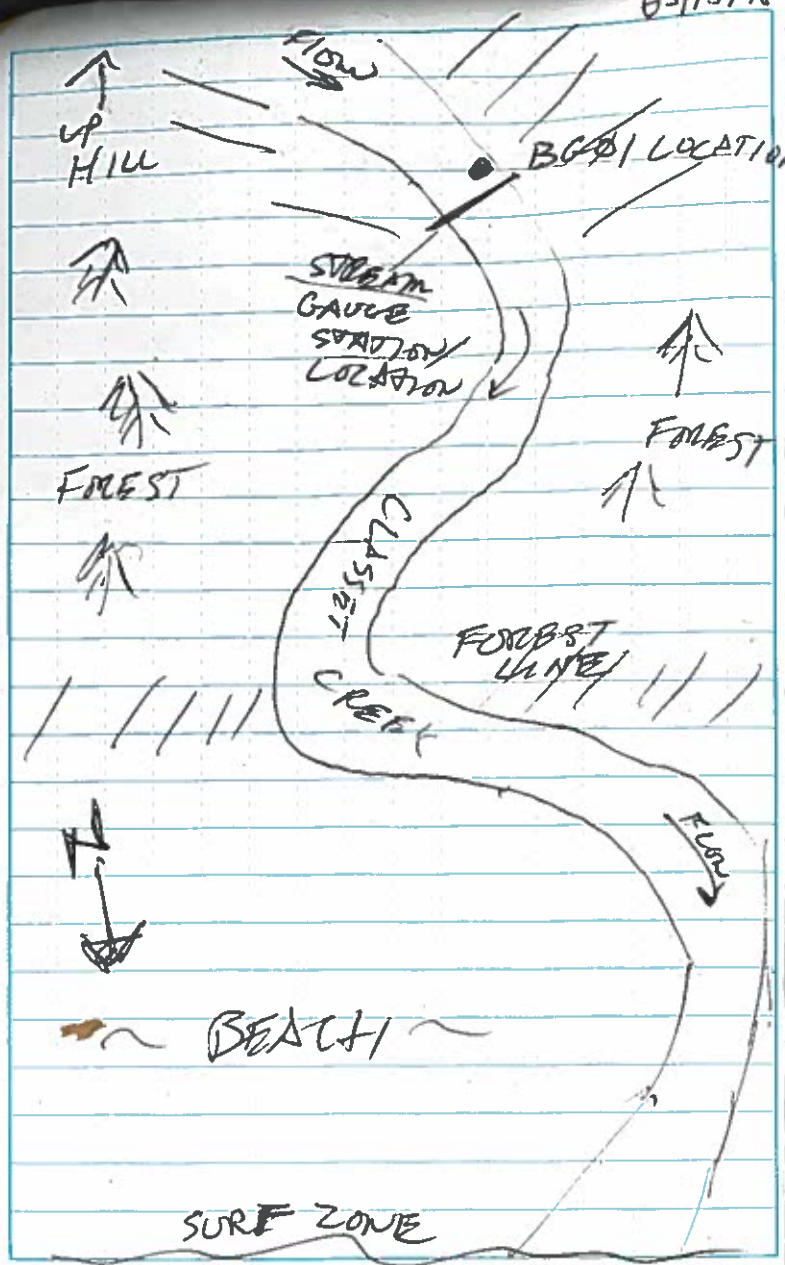 FLOW
UP
HILL
BGØ1 LOCATION
STREAM
GAUGE
STATION/
LOCATION
FOREST
FOREST
CLASSET
CREEK
FOREST
LINE
FLOW
N
~ BEACH ~
SURF ZONE